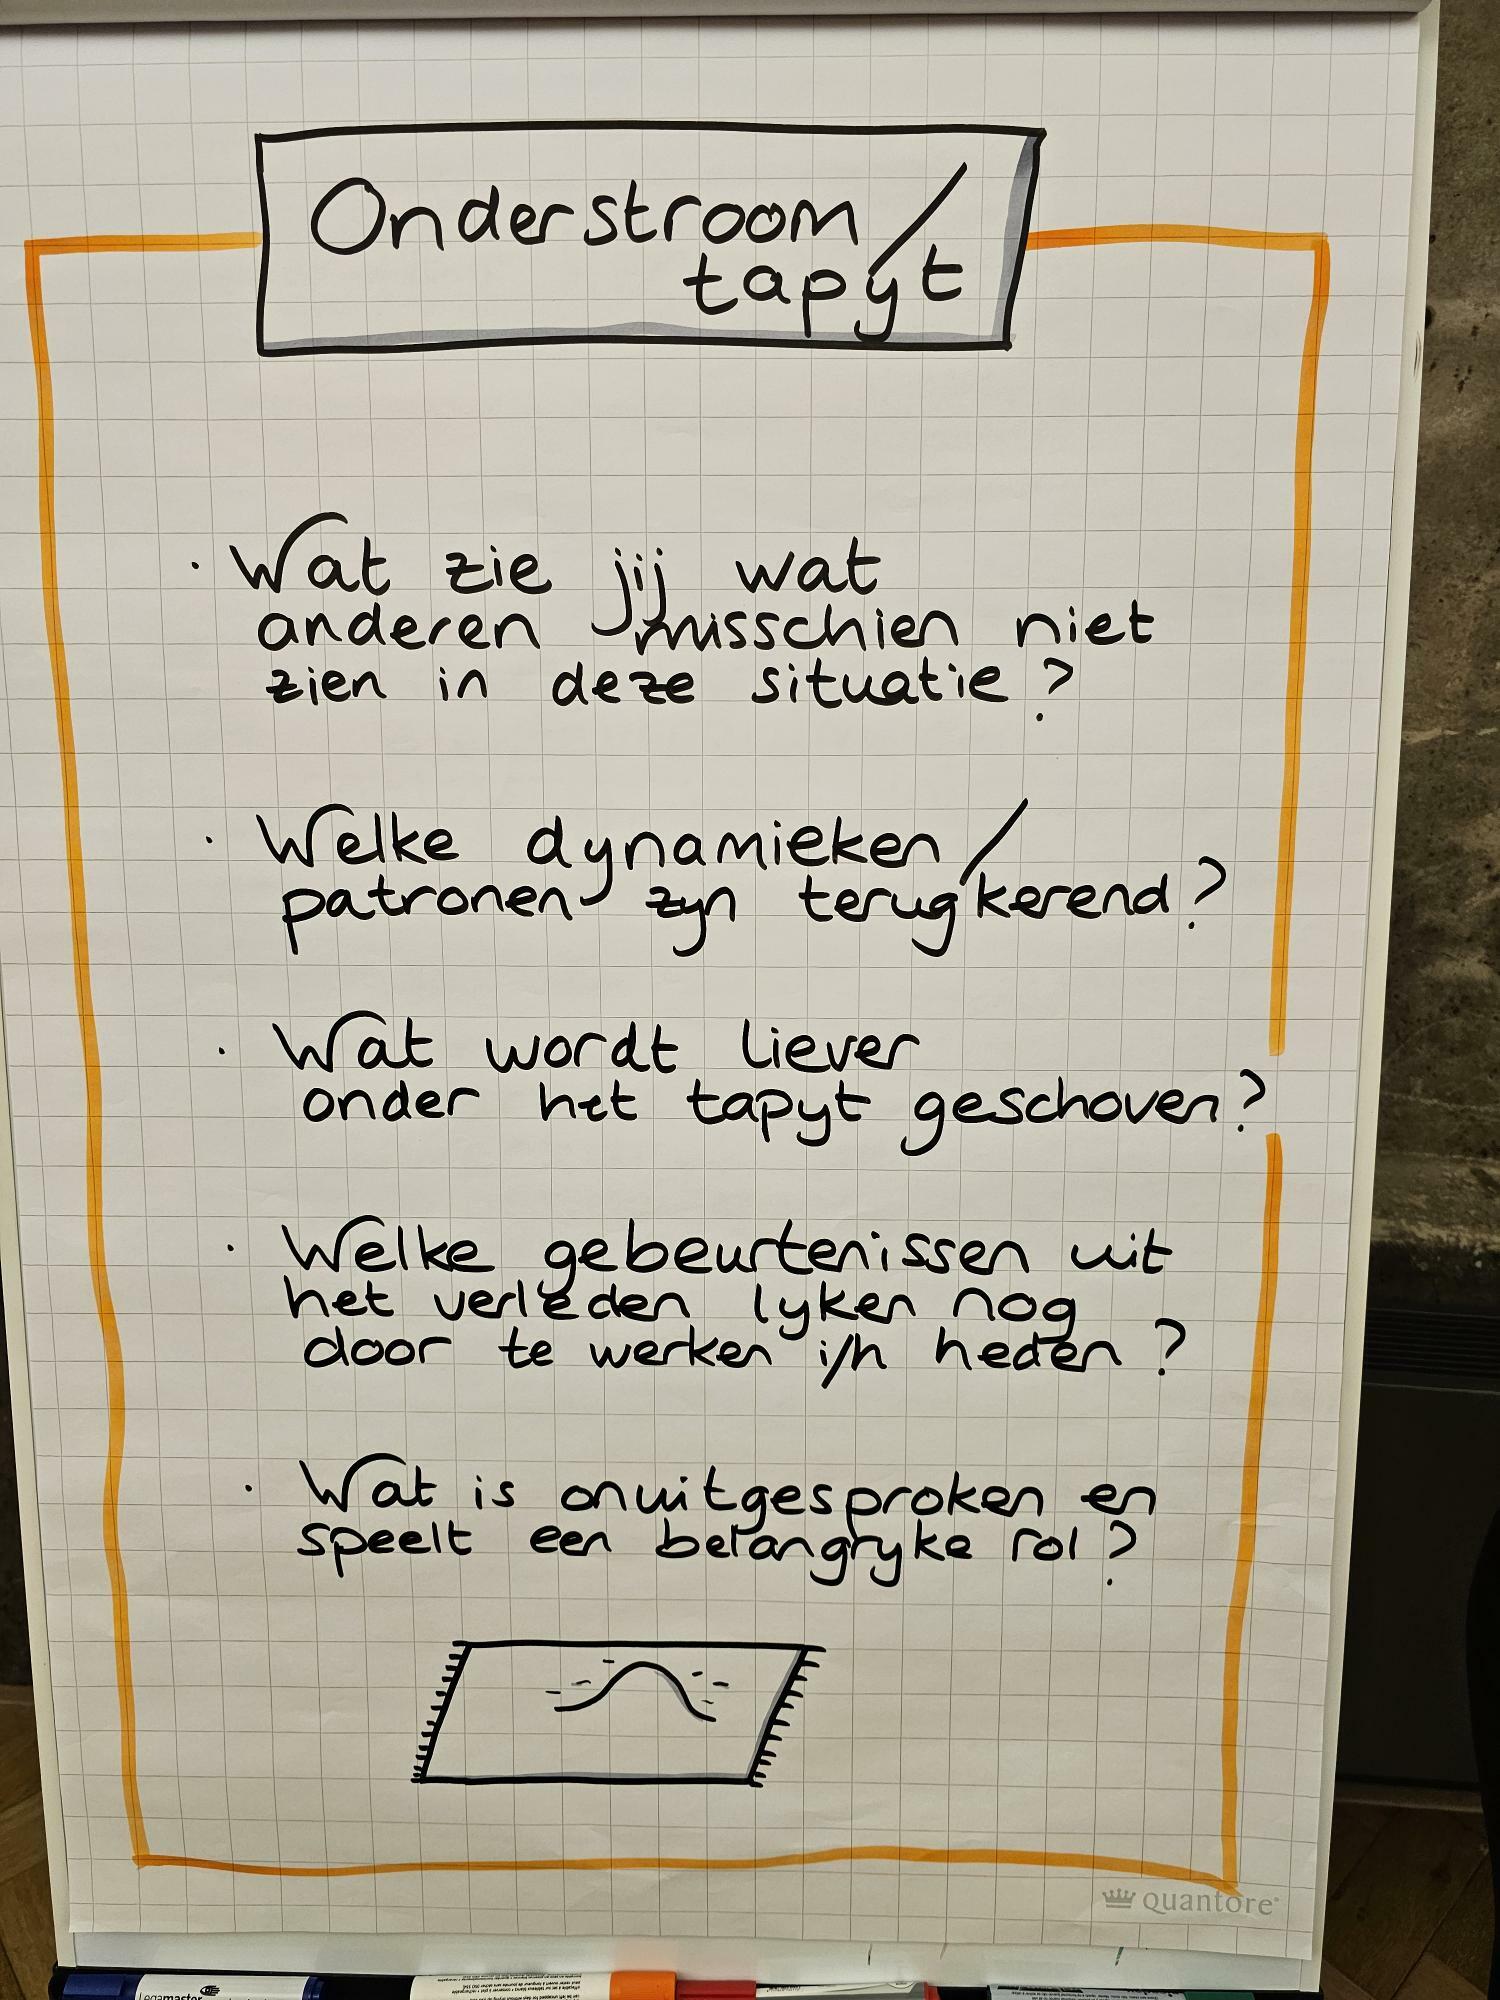 Onderstroom /
tapyt
· Wat zie jij wat
anderen misschien niet
zien in deze situatie ?
· Welke dynamieken /
patronen zyn terugkerend ?
· Wat wordt liever
onder het tapyt geschoven ?
· Welke gebeurtenissen uit
het verleden lyken nog
door te werken i/h heden ?
· Wat is onuitgesproken en
speelt een belangryke rol ?
quantore
Legamaster